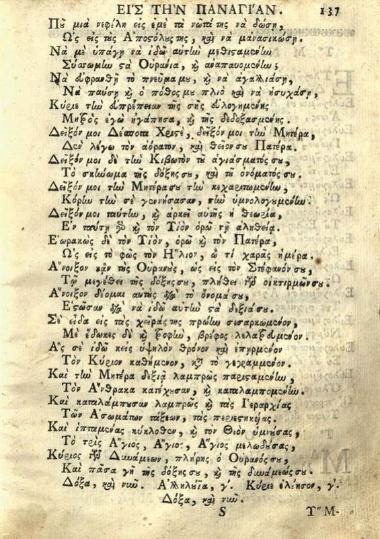 ΕΙΣ ΤΗΝ ΠΑΝΑΓΙΑΝ. 137
Ποῦ μιὰ νεφέλη εἰς ἐμὲ τὰ νῶτά της νὰ δώσῃ,
Ὡς εἰς τὰς Ἀποστόλους της, καὶ νὰ
Νὰ μὲ ὑπάγῃ νὰ ἰδῶ αὐτὴν μεθισαμένην
τὰ Οὐράνια, κὶ ἀναπαυομένην;
Νὰ εὐφρανθῇ τὸ πνεῦμα μου, κὶ νὰ ἀγαλλιάσῃ,
Νὰ παύσῃ κὶ ὁ πόθος μου πλιὸ καὶ νὰ ἡσυχάσῃ,
Κύριε τὴν εὐπρέπειαν τῆς σῆς εὐλογημένης
Μητρὸς ἐγὼ ἠγάπησα, κὶ τῆς δεδοξασμένης.
Δεῖξόν μοι Δέσποτα Χριστέ, δεῖξόν μοι τὴν Μητέρα,
Δὲν λέγω τὸν ἀόρατον, καὶ θεῖόν σου Πατέρα.
Δεῖξόν μοι δὲ τὴν Κιβωτὸν τοῦ ἁγιάσματός σου,
Τὸ σκήνωμα τῆς δόξης σου, καὶ τοῦ ὀνόματός σου.
Δεῖξόν μοι τὴν Μητέρα σου τὴν κεχαριτωμένην,
Κόρην τὴν σὲ γεννήσασαν, τὴν ὑμνολογουμένην.
Δεῖξόν μοι ταύτην, κὶ ἀρκεῖ αὐτῆς ἡ θεωρία,
Ἐν ταύτῃ γὸ κὶ τὸν Υἱὸν ὁρῶ τῇ ἀληθείᾳ.
Ἑωρακὼς δὲ τὸν Υἱὸν, ὁρῶ κὶ τὸν Πατέρα,
Ὡς εἰς τὸ φῶς τὸν Ἥλιον, ὢ τί χαρᾶς ἡμέρα.
Ἄνοιξον κᾂν τὰς Οὐρανὰς, ὡς εἰς τὸν Στέφανόν σου,
Τῷ μεγέθει τῆς δόξης σου, πλήθει τῶν οἰκτιρμῶν σου.
Ἄνοιξον δέομαι αὐτὰς διὰ τὸ ὄνομά σου,
Ἑστῶσαν διὰ νὰ ἰδῶ αὐτὴν τὰ δεξιά σου.
Σὲ εἶδα εἰς τὰς χεῖράς της πρώτην σεσαρκωμένον,
Μὲ ἔδωκες δὲ κὶ ζωὴν, βρέφος
Ἂς σὲ ἰδῶ κεἰς ὑψηλὸν θρόνον καὶ ἐπηρμένον
Τὸν Κύριον καθήμενον, κατὰ τὸ γεγραμμένον.
Καὶ τὴν Μητέρα δεξιὰ λαμπρῶς παρισαμένην,
Τὸν Ἄνθρακα κατέχουσαν, κὶ καταλαμπομένην.
Καὶ καταλάμπουσαν λαμπρῶς κὶ τὰς Ἱεραρχίας
Τῶν Ἀσωμάτων τάξεων, τὰς
Καὶ ἱπταμένας κύκλοθεν, κὶ τὸν Θεὸν ὑμνῆσας,
Τὸ τρὶς Ἅγιος, Ἅγιος, Ἅγιος μελωδῆσας,
Κύριος τῶν Δυνάμεων, πλήρης ὁ Οὐρανός σου,
Καὶ πᾶσα γῆ τῆς δόξης σου, κὶ τῆς δυνάμεώς σου.
Δόξα, καὶ νῦν. Ἀλληλούϊα, γ΄. Κύριε ἐλέησον, γ΄.
Δόξα, καὶ νῦν.
S ΥΜ-